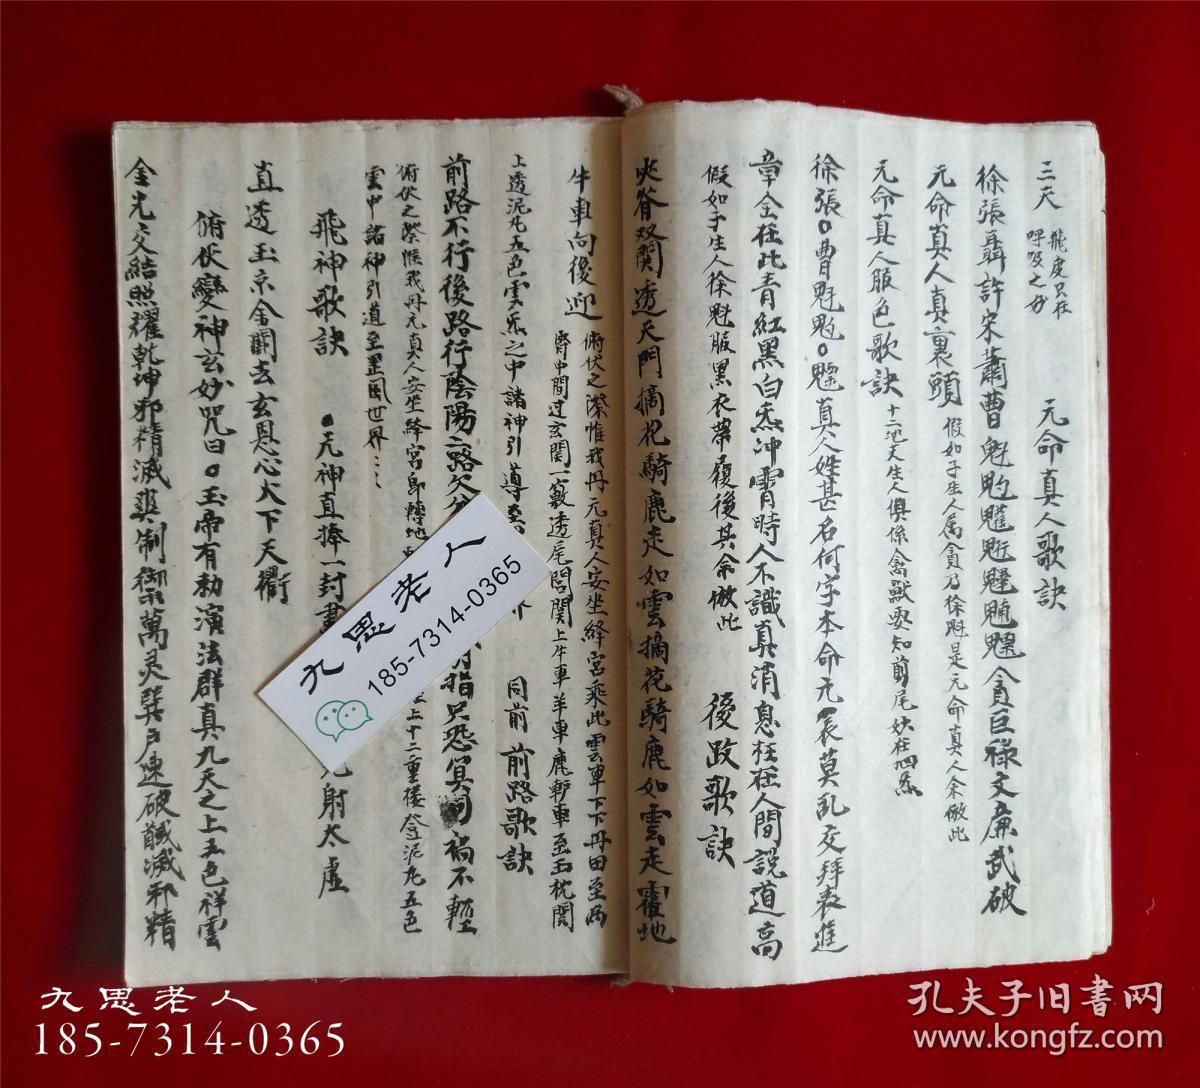 三天 龍虎只在
呼吸之妙 元命真人歌訣
徐張聶許宋蕭曹魁𩲃貪巨祿文廉武破
元命真人真裏頭 假如子生人属貪乃徐魁是元命真人余倣此
元命真人服色歌訣 十二地支生人俱係禽獸要知剪尾妖在四炁
徐張○曹魁魁○ 真人姓甚名何字本命元展莫乱交拜表進
章全在此青紅黑白炁沖霄時人不識真消息枉在人間說道高
假如子生人徐魁服黑衣帶履後其余倣此 後政歌訣
夾脊双関透天門摘花騎鹿走如雲摘花騎鹿如雲走霍地
牛車向後迎 俯伏之際惟我丹元真人安坐絳宮乘此雲車下下丹田至両
腎中間过玄関一竅透尾閭関上牛車羊車鹿車至玉枕関
上透泥丸五色雲炁之中諸神引導 同前 前路歌訣
前路不行後路行陰陽二路 指只恐冥司禍不輕
俯伏之際惟我丹元真人安坐絳宮即轉地 上十二重楼登泥丸五色
雲中諸神引道至 世界
飛神歌訣 ○元神直捧一封書 射太虛
直透玉京金闕去玄恩心大下天衢
俯伏變神玄妙咒曰○玉帝有勅演法群真九天之上五色祥雲
金光交結照耀乾坤邪精滅爽制御萬灵 速破 滅邪精
九思老人
185-7314-0365
九思老人
185-7314-0365
孔夫子旧書网
www.kongfz.com